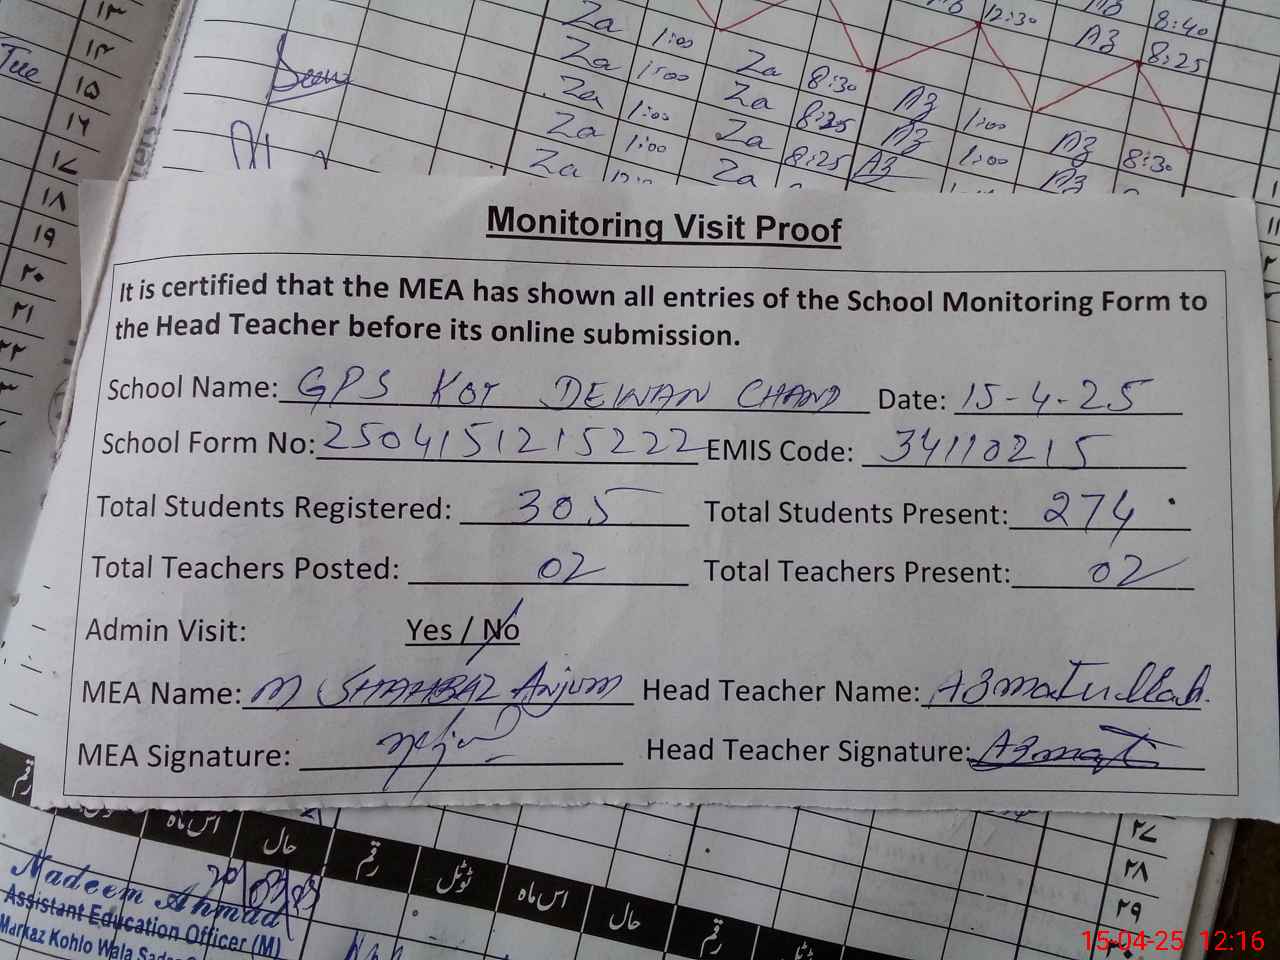 Za 1:00 12:30 8:40
Za 1:00 Za 8:30 Az 8:25
Tue Za 1:00 Za 8:25 Az 1:00
Za 1:00 Za 8:25 Az 1:00 Az 8:30
Za Za Az
۱۳
۱۴
۱۵
۱۶
۱۷
۱۸
۱۹
۲۰
۲۱
۲۲
Monitoring Visit Proof
It is certified that the MEA has shown all entries of the School Monitoring Form to
the Head Teacher before its online submission.
School Name: GPS KOT DEWAN CHAND Date: 15-4-25
School Form No: 2504151215222 EMIS Code: 34110215
Total Students Registered: 305 Total Students Present: 274
Total Teachers Posted: 02 Total Teachers Present: 02
Admin Visit: Yes / No
MEA Name: M SHAHBAZ Anjum Head Teacher Name: Azmatullah.
MEA Signature: Head Teacher Signature: Azmat
رقم اس ماہ حال رقم ٹوٹل اس ماہ حال رقم
۲۷
۲۸
۲۹
Nadeem Ahmad
Assistant Education Officer (M)
Markaz Kohlo Wala
15-04-25 12:16